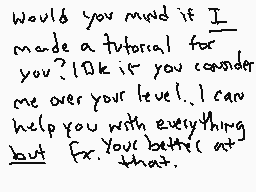 Would you mind if I
made a tutorial for
you? IDk if you consider
me over your level.. I can
help you with everything
but fx. Your better at
that.